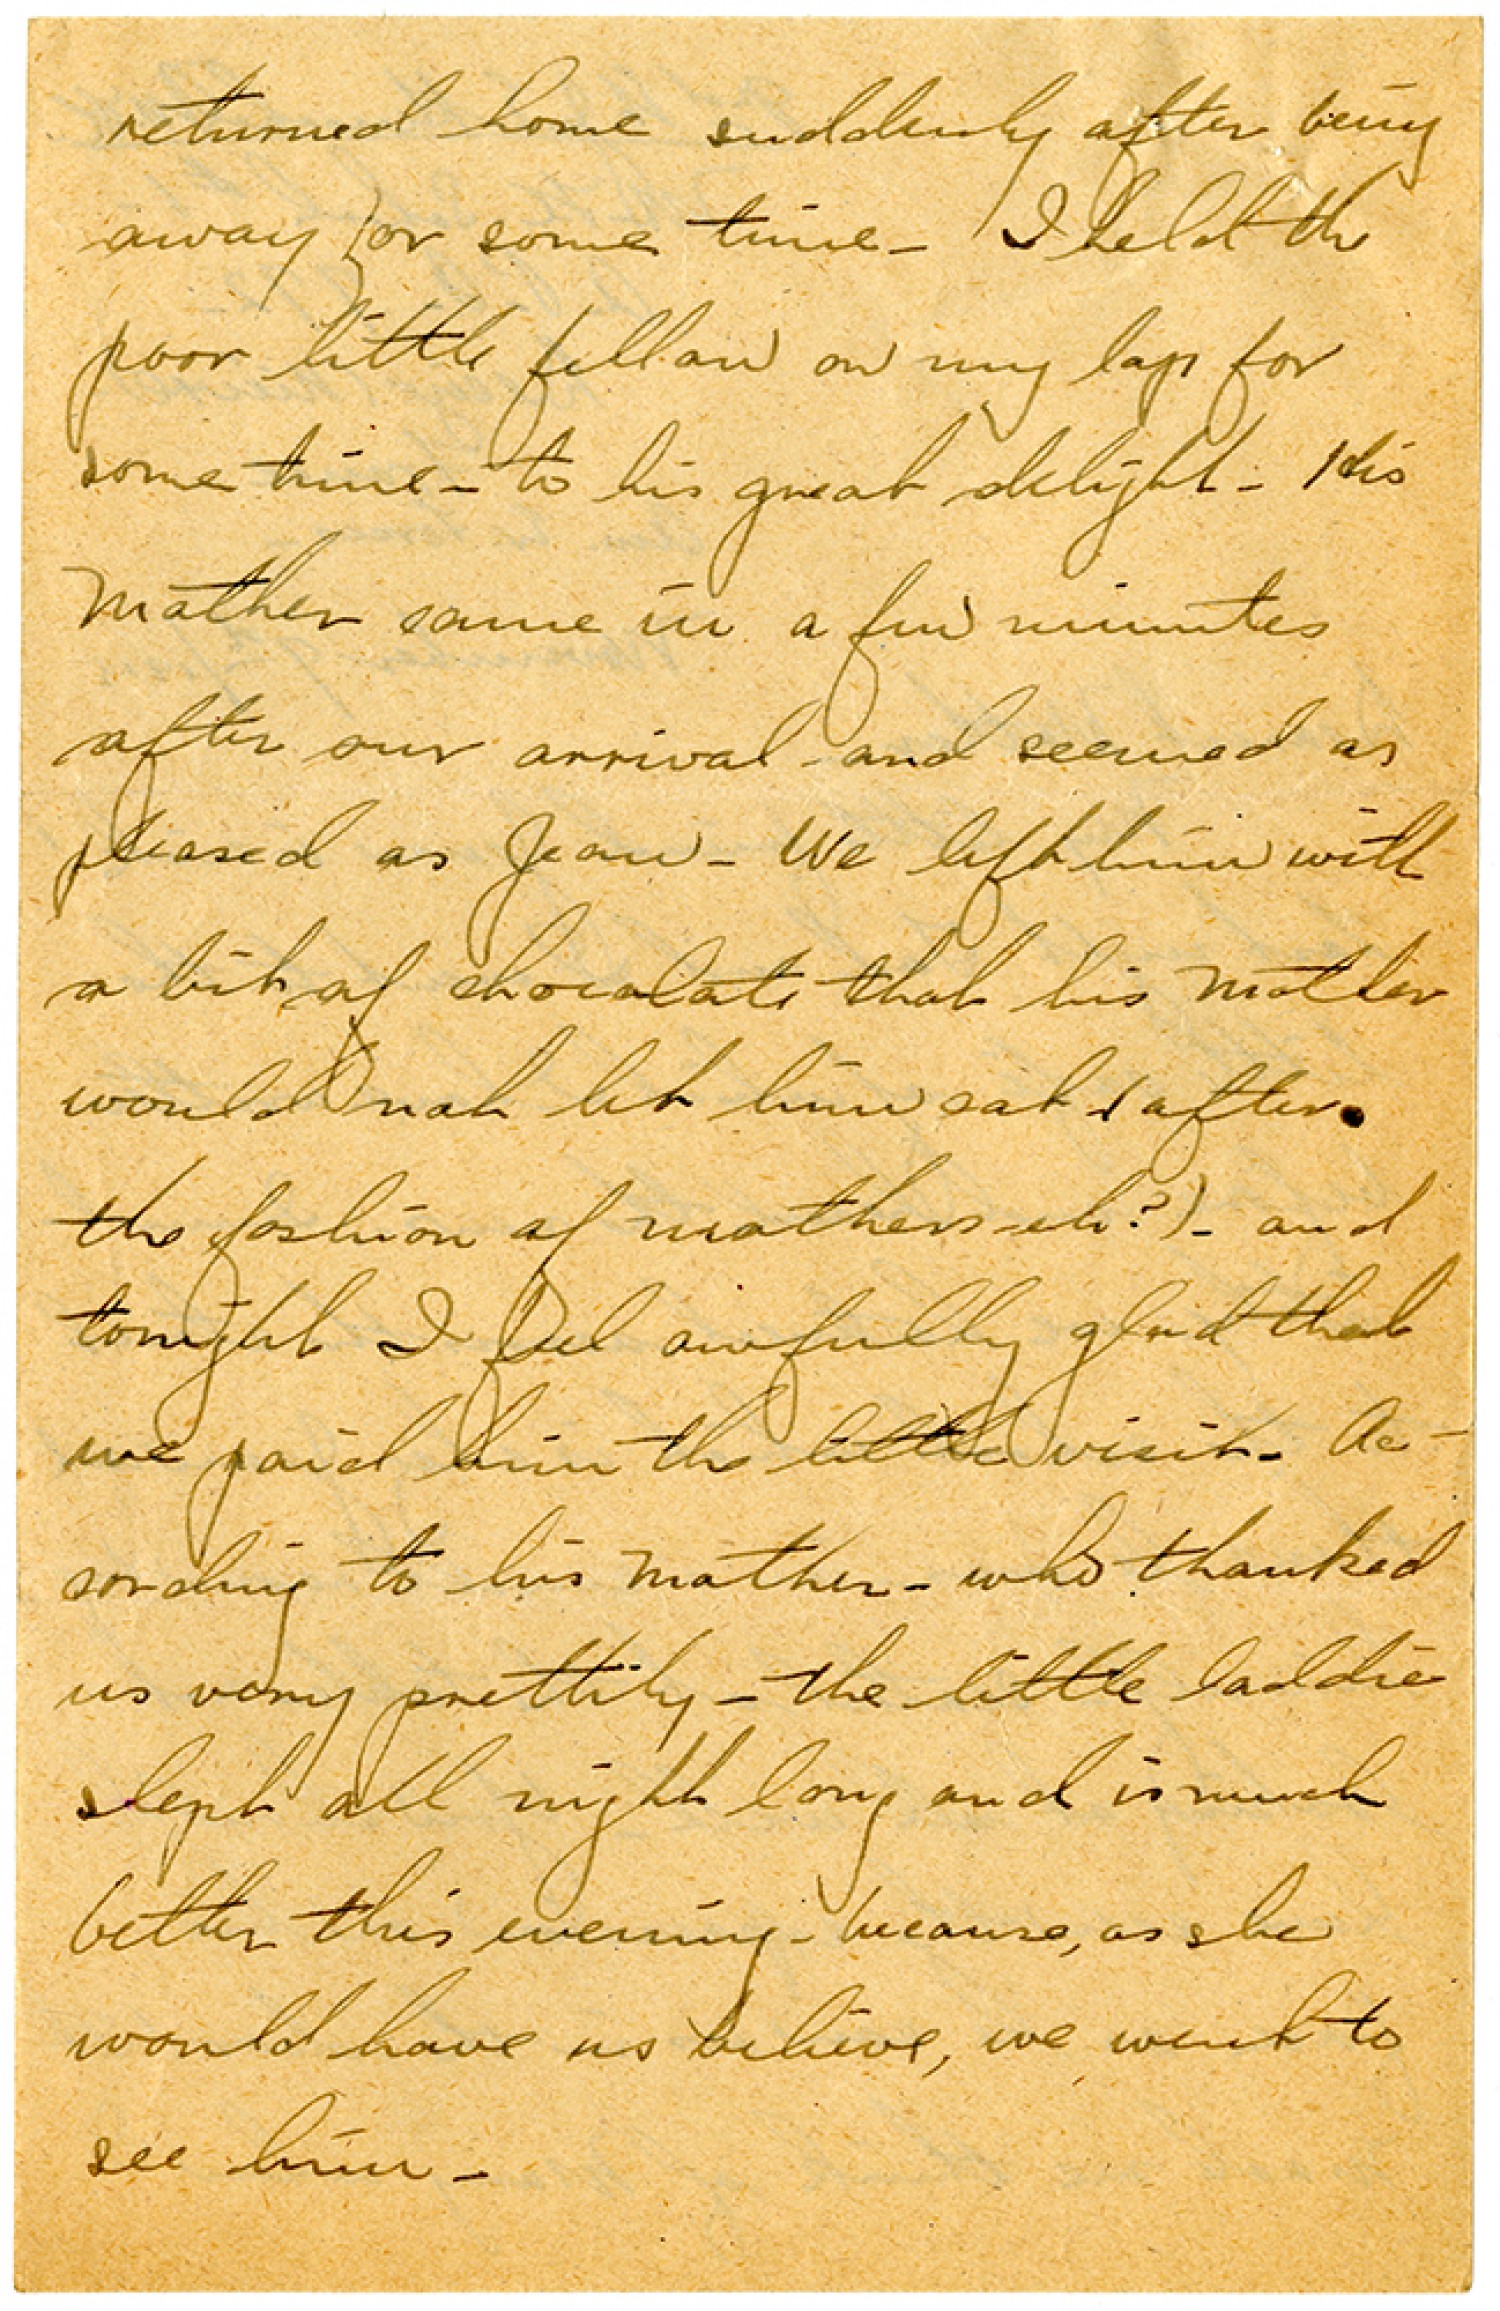 returned home suddenly after being
away for some time - I held the
poor little fellow on my lap for
some time - to his great delight - His
Mother came in a few minutes
after our arrival - and seemed as
pleased as Jean - We left him with
a bit of chocolate that his Mother
would not let him eat (after
the fashion of mothers - eh?) - and
tonight I feel awfully glad that
we paid him the little visit - Ac-
cording to his Mother - who thanked
us very prettily - the little laddie
slept all night long and is much
better this evening - because, as she
would have us believe, we went to
see him -